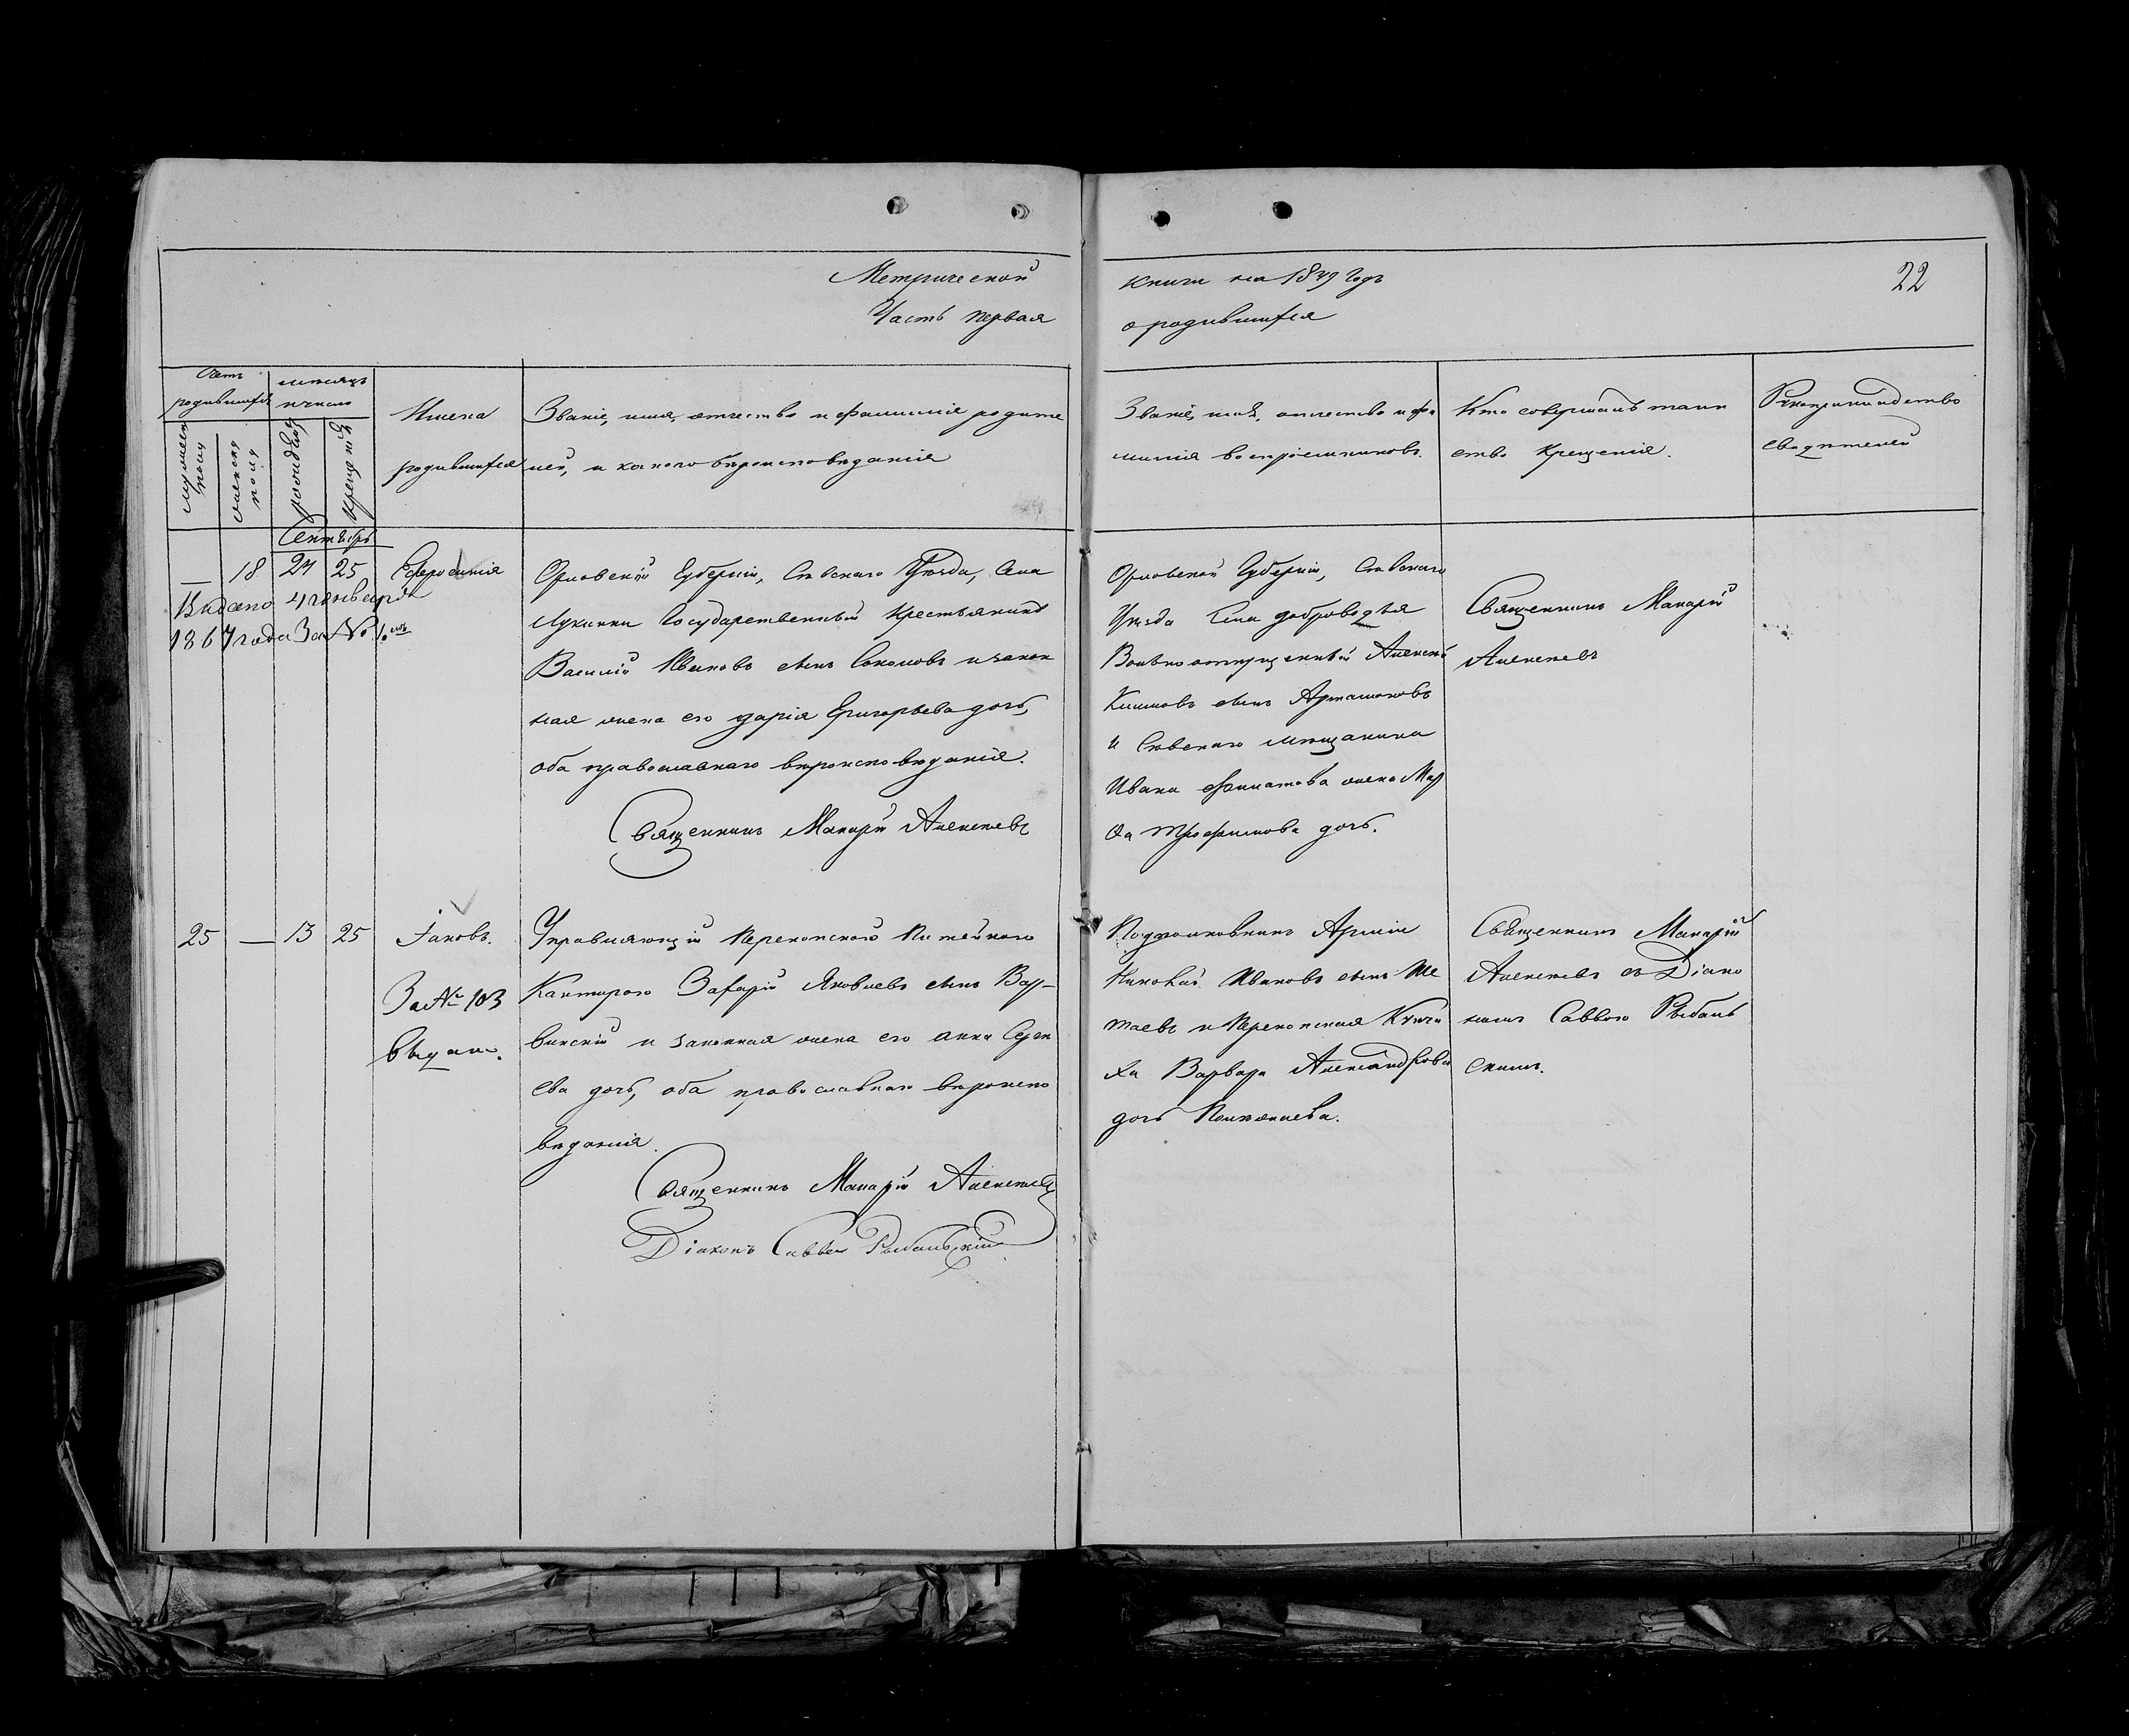 Метрической
Часть первая
книги на 1849 годъ
22
о родившихся
Счетъ родившихся
мѣсяцъ и число
мужеска пола
женска пола
рожденія
крещенія
Имена
родившихся
Званіе, имя, отчество и фамилія родите
лей, и какого вѣроисповѣданія
Званіе, имя, отчество и фа
милія воспріемниковъ.
Кто совершалъ таин
ство Крещенія.
Рукоприкладство
свидѣтелей
Сентябрь
— 18 24 25
Ефросинія
Видано 4 генваря
1867 года За №
Орловской Губерніи, Сѣвскаго Уѣзда, Села
Лукинки Государственный Крестьянинъ
Василій Ивановъ сынъ Соколовъ и закон
ная жена его Дарія Григорьева дочь,
оба православнаго вѣроисповѣданія.
Священникъ Макарій Алексѣевъ
Орловской Губерніи, Сѣвскаго
Уѣзда Села Доброводья
Вольноотпущенный Алексѣй
Климовъ сынъ Арташоковъ
и Сѣвскаго мѣщанина
Ивана Филатова жена Мар
ѳа Трофимова дочь.
Священникъ Макарій
Алексѣевъ
25 — 13 25
Іаковъ.
За № 103
выдано.
Управляющій Перекопскою Питейною
Канторою Захарій Яковлевъ сынъ Вар-
винскій и законная жена его Анна Сергѣ
ева дочь, оба православнаго вѣроиспо
вѣданія.
Священникъ Макарій Алексѣевъ
Діаконъ Савва Рыбальскій
Подполковникъ Арміи
Николай Ивановъ сынъ Ше
таевъ и Перекопская Купчи
ха Варвара Александрова
дочь
Священникъ Макарій
Алексѣевъ съ Діако
номъ Саввою Рыбаль
скимъ.